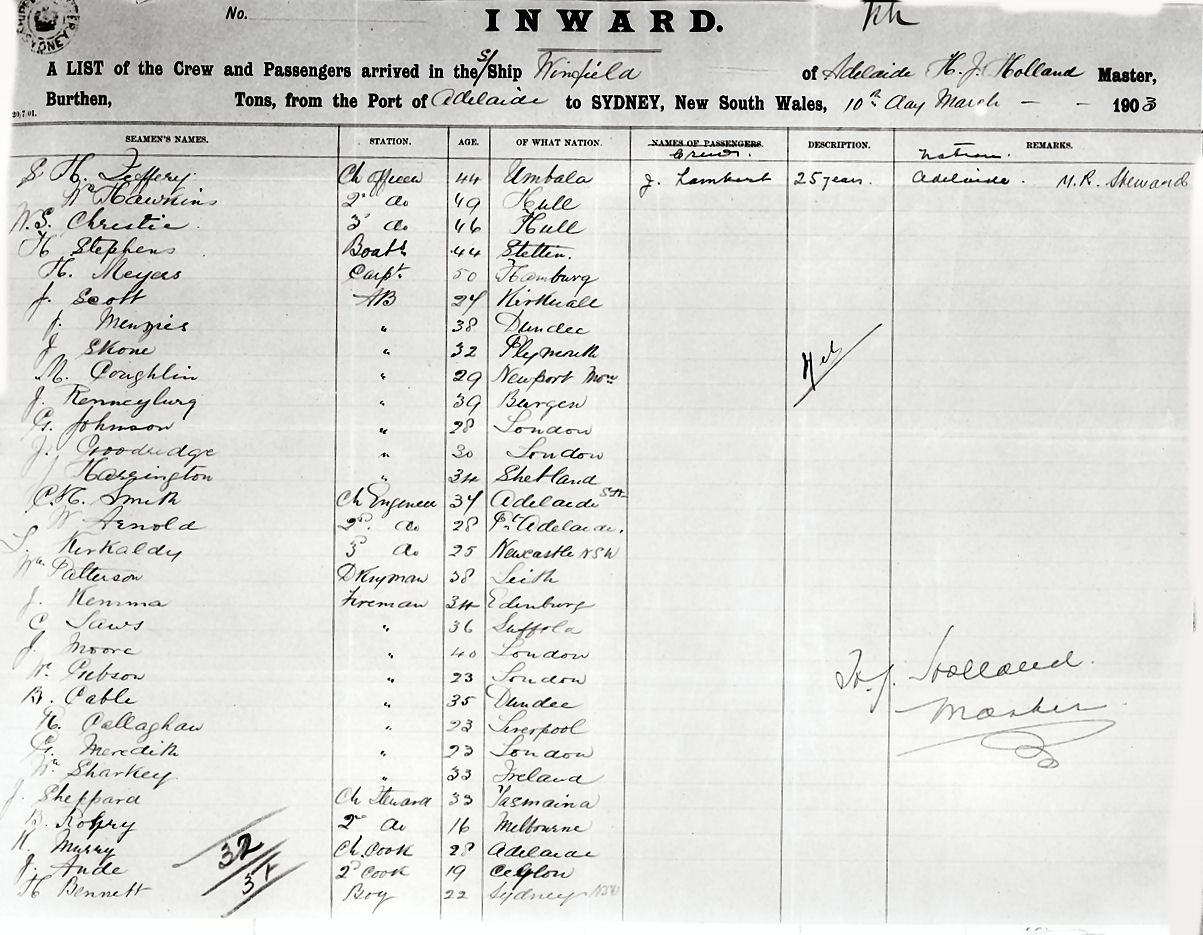 No.
INWARD.
A LIST of the Crew and Passengers arrived in the S/Ship Winfield of Adelaide H. J. Holland Master,
Burthen, Tons, from the Port of Adelaide to SYDNEY, New South Wales, 10th day March - - 1903
20,7 01.
SEAMEN'S NAMES. STATION. AGE. OF WHAT NATION. NAMES OF PASSENGERS. Crew. DESCRIPTION. Nation. REMARKS.
S H. Jeffery Ch officer 44 Umbala J. Lambert 25 years. Adelaide. M.R. Steward
Wm Hawkins 2d do 49 Hull
W.S. Christie 3d do 46 Hull
H Stephens Boats 44 Stettin.
H. Meyers Carpt. 50 Hamburg
J. Scott AB 24 Kirkwall
J. Menzies " 38 Dundee
J Skone " 32 Plymouth
M. Coughlin " 29 Newport Mon
J. " 39 Bergen
G. Johnson " 28 London
J. Goodridge " 30 London
J Harrington " 34 Shetland
C.H. Smith Ch Engineer 34 Adelaide Sth
W Arnold 2d do 28 Pt Adelaide.
Kirkaldy 3 do 25 Newcastle NSW
Wm Patterson Dkyman 38 Leith
J. Kemma Fireman 34 Edinburg
C Saws " 36 Suffolk
J. Moore " 40 London
Wm Gibson " 23 London
B. Cable " 35 Dundee
H. Callaghan " 23 Liverpool
G. Meredith " 23 London
Wm Sharkey " 33 Ireland
J. Sheppard Ch Steward 33 Tasmaina
B. 2d do 16 Melbourne
H. Murry Ch. Cook 28 Adelaide
J. Aude 2d Cook 19 Ceylon
H Bennett Boy 22 Sydney NSW
32
31
H. J. Holland.
Master